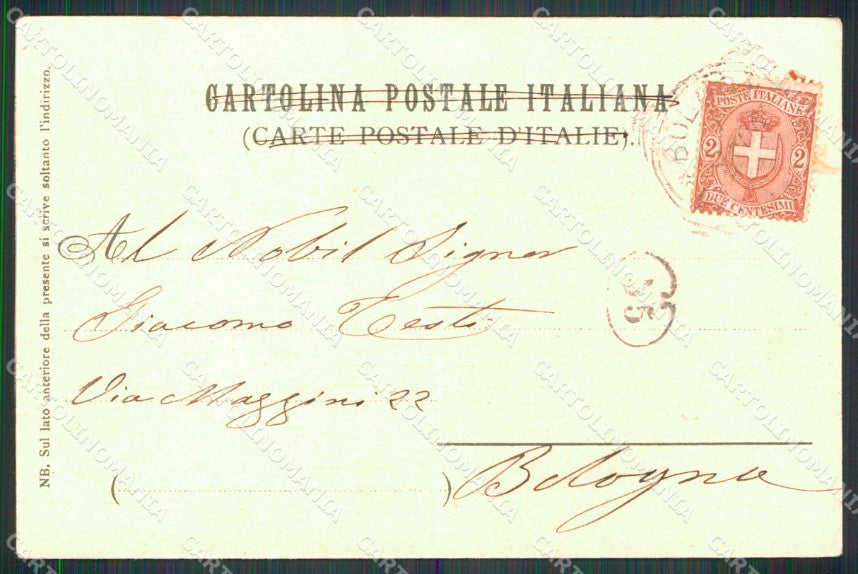 CARTOLINA POSTALE ITALIANA
(CARTE POSTALE D'ITALIE).
POSTE ITALIANE
2 2
DUE CENTESIMI
BOLOGNA
Al Nobil Signor
Giacomo Testi
Via Maggini 22
Bologna
NB. Sul lato anteriore della presente si scrive soltanto l'indirizzo.
CARTOLINOMANIA